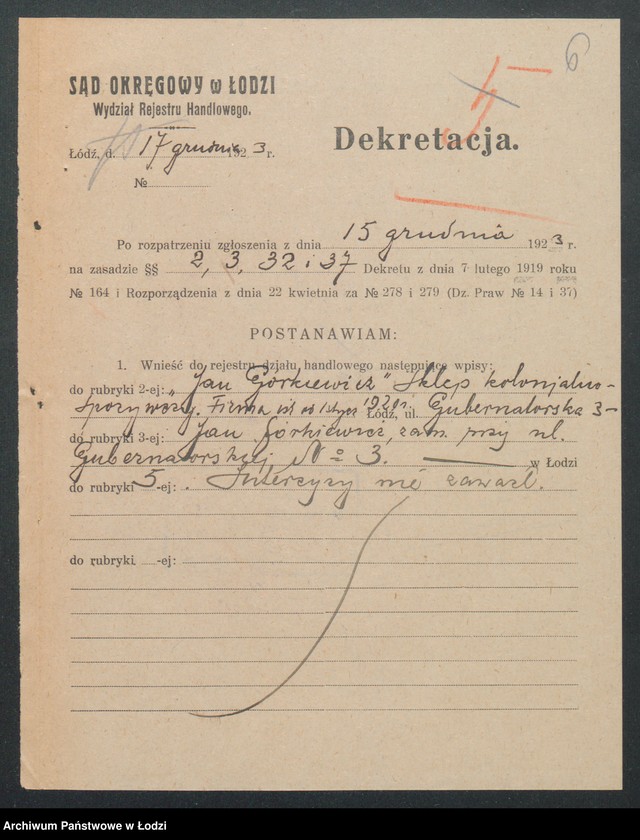 6
5
SĄD OKRĘGOWY w ŁODZI
Wydział Rejestru Handlowego.
Łódź, d. 17 grudnia 1923 r.
Dekretacja.
№
Po rozpatrzeniu zgłoszenia z dnia 15 grudnia 1923 r.
na zasadzie §§ 2, 3, 32 i 37 Dekretu z dnia 7 lutego 1919 roku
№ 164 i Rozporządzenia z dnia 22 kwietnia za № 278 i 279 (Dz. Praw № 14 i 37)
POSTANAWIAM:
1. Wnieść do rejestru działu handlowego następujące wpisy:
do rubryki 2-ej: „Jan Górkiewicz" Sklep kolonjalno-
spożywczy. Firma ist. od 1920 r. Łódź, ul. Gubernatorska 3-
do rubryki 3-ej: Jan Górkiewicz, zam. przy ul.
Gubernatorskiej № 3. w Łodzi
do rubryki 5-ej: Intercyzy nie zawarł.
do rubryki -ej:
Archiwum Państwowe w Łodzi